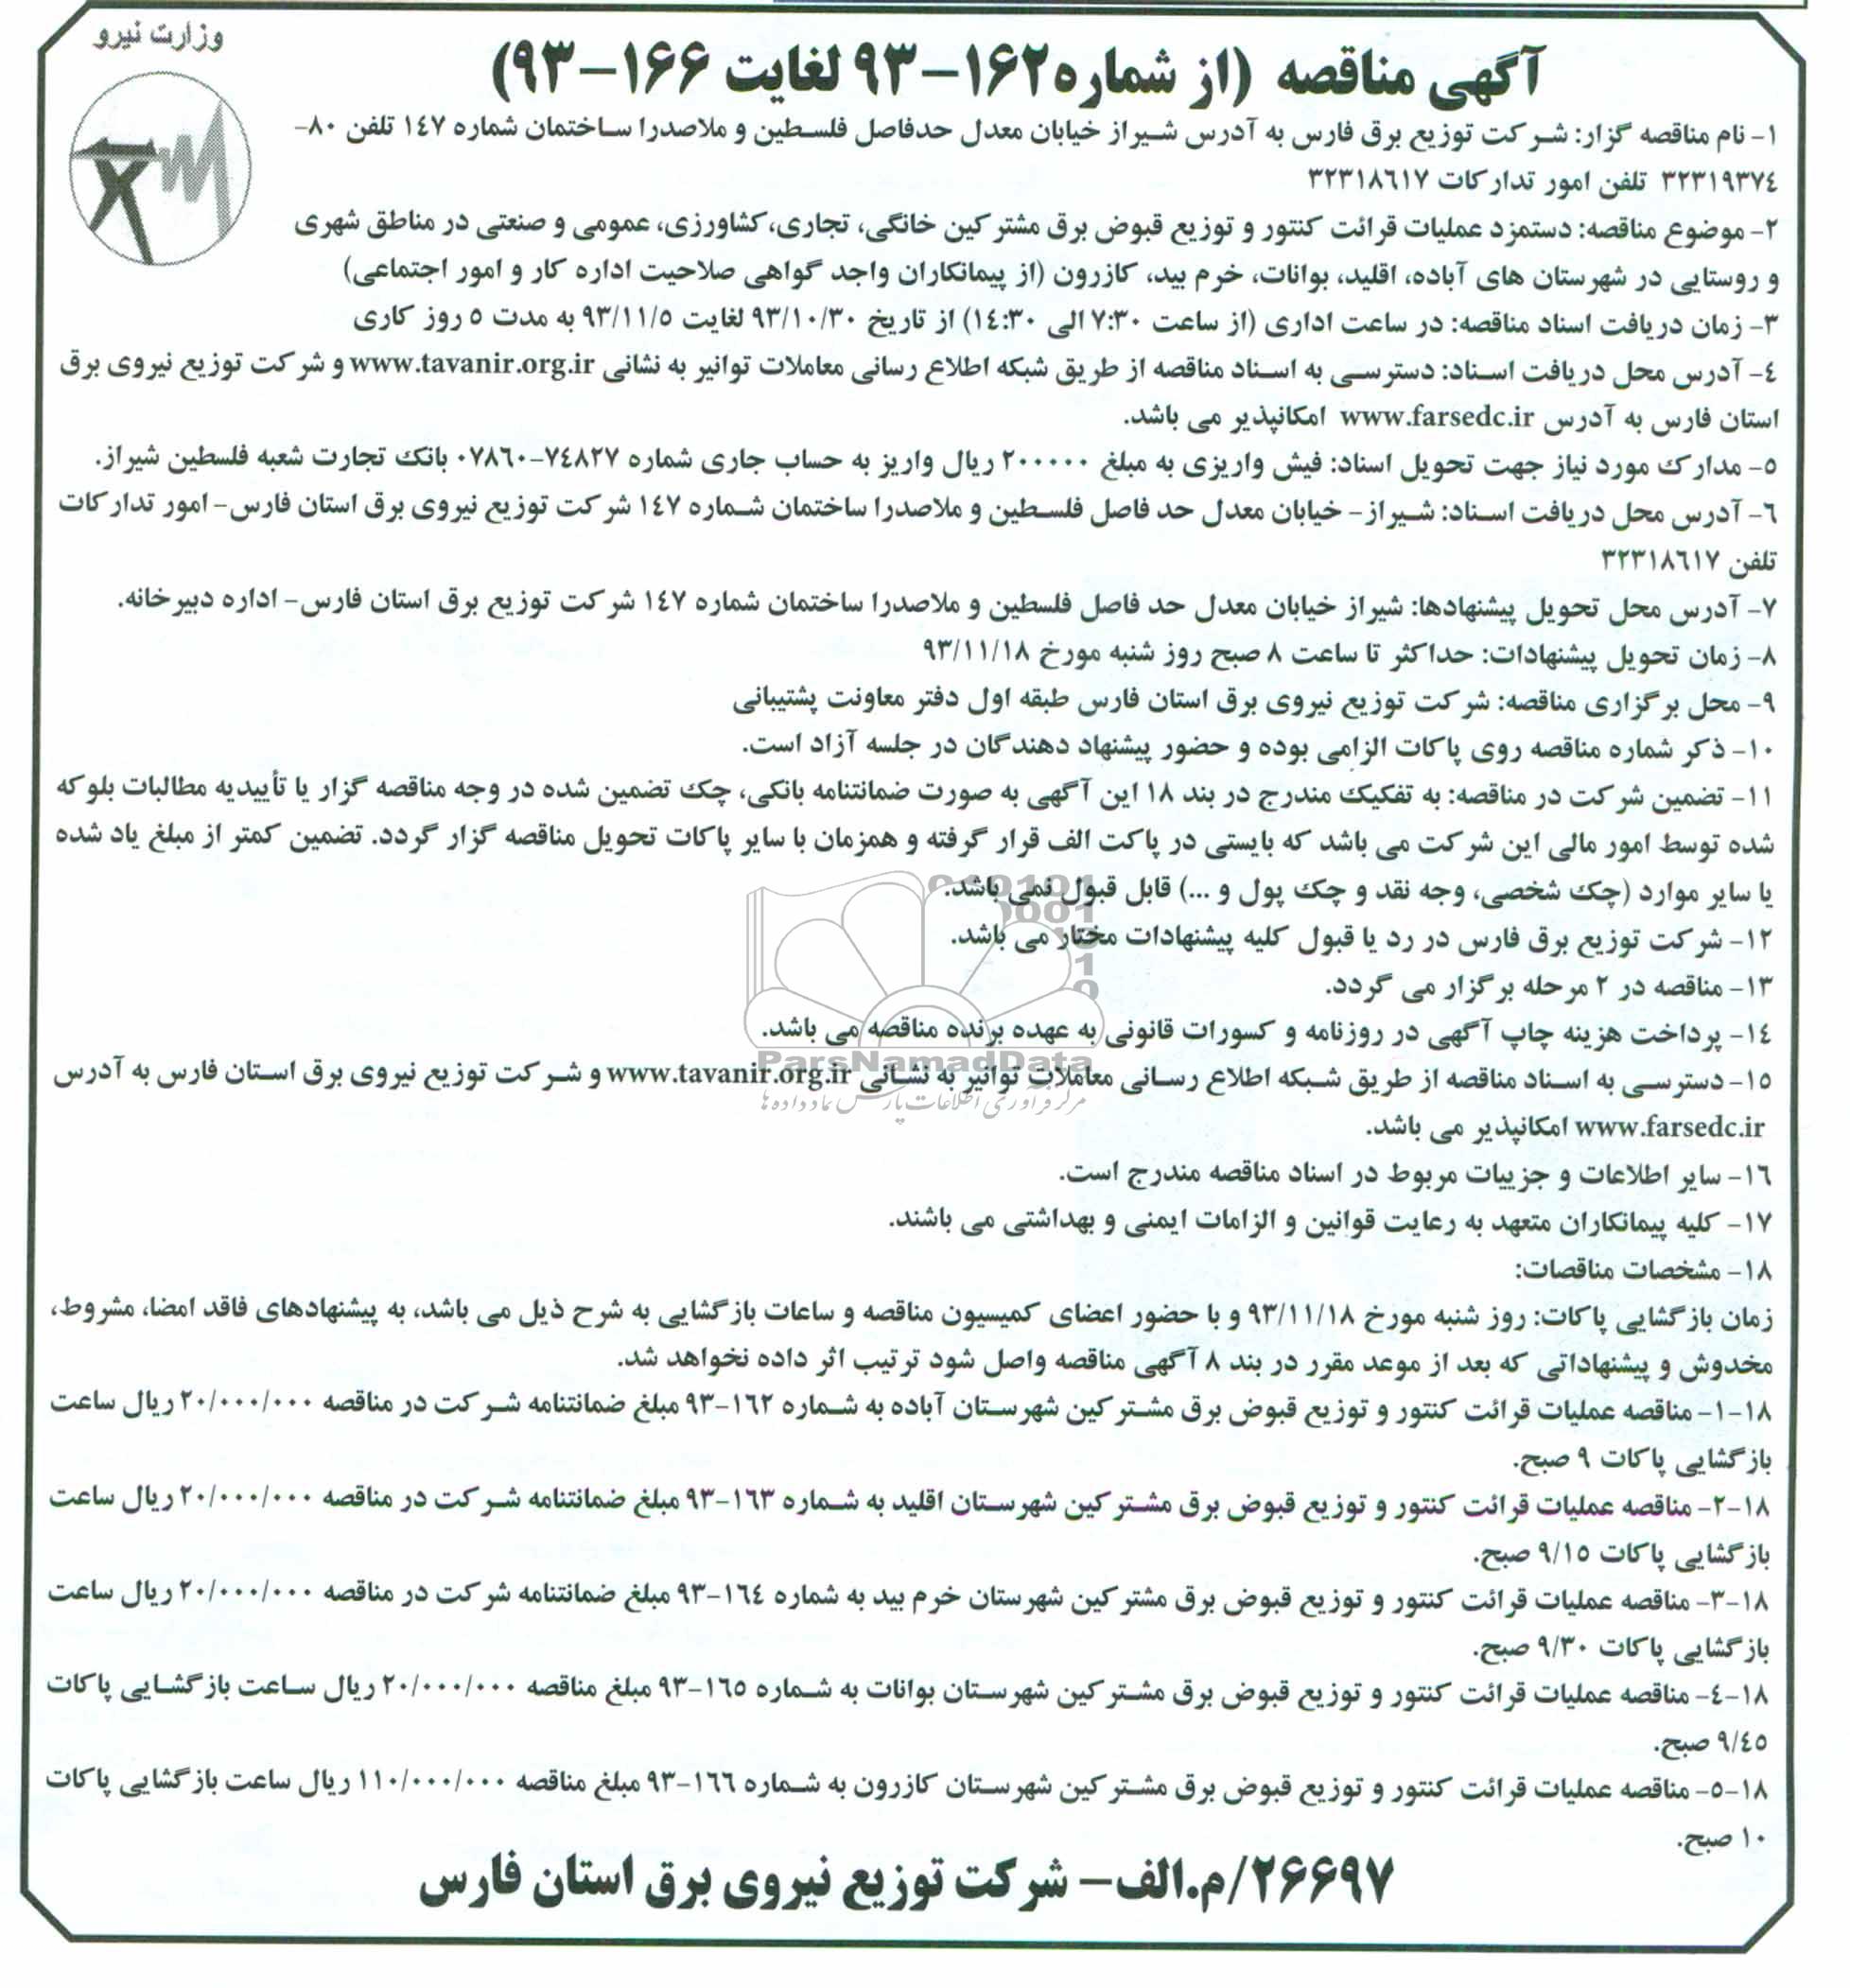 وزارت نیرو
آگهی مناقصه (از شماره ۱۶۲-۹۳ لغایت ۱۶۶-۹۳)
۱- نام مناقصه گزار: شرکت توزیع برق فارس به آدرس شیراز خیابان معدل حدفاصل فلسطین و ملاصدرا ساختمان شماره ۱٤۷ تلفن ۸۰-
۳۲۳۱۹۳۷٤ تلفن امور تدارکات ۳۲۳۱۸٦۱۷
۲- موضوع مناقصه: دستمزد عملیات قرائت کنتور و توزیع قبوض برق مشترکین خانگی، تجاری، کشاورزی، عمومی و صنعتی در مناطق شهری
و روستایی در شهرستان های آباده، اقلید، بوانات، خرم بید، کازرون (از پیمانکاران واجد گواهی صلاحیت اداره کار و امور اجتماعی)
۳- زمان دریافت اسناد مناقصه: در ساعت اداری (از ساعت ۷:۳۰ الی ۱٤:۳۰) از تاریخ ۹۳/۱۰/۳۰ لغایت ۹۳/۱۱/۵ به مدت ۵ روز کاری
٤- آدرس محل دریافت اسناد: دسترسی به اسناد مناقصه از طریق شبکه اطلاع رسانی معاملات توانیر به نشانی www.tavanir.org.ir و شرکت توزیع نیروی برق
استان فارس به آدرس www.farsedc.ir امکانپذیر می باشد.
۵- مدارک مورد نیاز جهت تحویل اسناد: فیش واریزی به مبلغ ۲۰۰۰۰۰ ریال واریز به حساب جاری شماره ۷٤۸۲۷-۰۷۸٦۰ بانک تجارت شعبه فلسطین شیراز.
٦- آدرس محل دریافت اسناد: شیراز- خیابان معدل حد فاصل فلسطین و ملاصدرا ساختمان شماره ۱٤۷ شرکت توزیع نیروی برق استان فارس- امور تدارکات
تلفن ۳۲۳۱۸٦۱۷
۷- آدرس محل تحویل پیشنهادها: شیراز خیابان معدل حد فاصل فلسطین و ملاصدرا ساختمان شماره ۱٤۷ شرکت توزیع برق استان فارس- اداره دبیرخانه.
۸- زمان تحویل پیشنهادات: حداکثر تا ساعت ۸ صبح روز شنبه مورخ ۹۳/۱۱/۱۸
۹- محل برگزاری مناقصه: شرکت توزیع نیروی برق استان فارس طبقه اول دفتر معاونت پشتیبانی
۱۰- ذکر شماره مناقصه روی پاکات الزامی بوده و حضور پیشنهاد دهندگان در جلسه آزاد است.
۱۱- تضمین شرکت در مناقصه: به تفکیک مندرج در بند ۱۸ این آگهی به صورت ضمانتنامه بانکی، چک تضمین شده در وجه مناقصه گزار یا تأییدیه مطالبات بلوکه
شده توسط امور مالی این شرکت می باشد که بایستی در پاکت الف قرار گرفته و همزمان با سایر پاکات تحویل مناقصه گزار گردد. تضمین کمتر از مبلغ یاد شده
یا سایر موارد (چک شخصی، وجه نقد و چک پول و ...) قابل قبول نمی باشد.
۱۲- شرکت توزیع برق فارس در رد یا قبول کلیه پیشنهادات مختار می باشد.
۱۳- مناقصه در ۲ مرحله برگزار می گردد.
۱٤- پرداخت هزینه چاپ آگهی در روزنامه و کسورات قانونی به عهده برنده مناقصه می باشد.
ParsNamadData
۱۵- دسترسی به اسناد مناقصه از طریق شبکه اطلاع رسانی معاملات توانیر به نشانی www.tavanir.org.ir و شرکت توزیع نیروی برق استان فارس به آدرس
مرکز فرآوری اطلاعات پارس نماد داده ها
www.farsedc.ir امکانپذیر می باشد.
۱٦- سایر اطلاعات و جزییات مربوط در اسناد مناقصه مندرج است.
۱۷- کلیه پیمانکاران متعهد به رعایت قوانین و الزامات ایمنی و بهداشتی می باشند.
۱۸- مشخصات مناقصات:
زمان بازگشایی پاکات: روز شنبه مورخ ۹۳/۱۱/۱۸ و با حضور اعضای کمیسیون مناقصه و ساعات بازگشایی به شرح ذیل می باشد، به پیشنهادهای فاقد امضا، مشروط،
مخدوش و پیشنهاداتی که بعد از موعد مقرر در بند ۸ آگهی مناقصه واصل شود ترتیب اثر داده نخواهد شد.
۱۸-۱- مناقصه عملیات قرائت کنتور و توزیع قبوض برق مشترکین شهرستان آباده به شماره ۱٦۲-۹۳ مبلغ ضمانتنامه شرکت در مناقصه ۲۰/۰۰۰/۰۰۰ ریال ساعت
بازگشایی پاکات ۹ صبح.
۱۸-۲- مناقصه عملیات قرائت کنتور و توزیع قبوض برق مشترکین شهرستان اقلید به شماره ۱٦۳-۹۳ مبلغ ضمانتنامه شرکت در مناقصه ۲۰/۰۰۰/۰۰۰ ریال ساعت
بازگشایی پاکات ۹/۱۵ صبح.
۱۸-۳- مناقصه عملیات قرائت کنتور و توزیع قبوض برق مشترکین شهرستان خرم بید به شماره ۱٦٤-۹۳ مبلغ ضمانتنامه شرکت در مناقصه ۲۰/۰۰۰/۰۰۰ ریال ساعت
بازگشایی پاکات ۹/۳۰ صبح.
۱۸-٤- مناقصه عملیات قرائت کنتور و توزیع قبوض برق مشترکین شهرستان بوانات به شماره ۱٦۵-۹۳ مبلغ مناقصه ۲۰/۰۰۰/۰۰۰ ریال ساعت بازگشایی پاکات
۹/٤۵ صبح.
۱۸-۵- مناقصه عملیات قرائت کنتور و توزیع قبوض برق مشترکین شهرستان کازرون به شماره ۱٦٦-۹۳ مبلغ مناقصه ۱۱۰/۰۰۰/۰۰۰ ریال ساعت بازگشایی پاکات
۱۰ صبح.
۲۶۶۹۷/م.الف- شرکت توزیع نیروی برق استان فارس